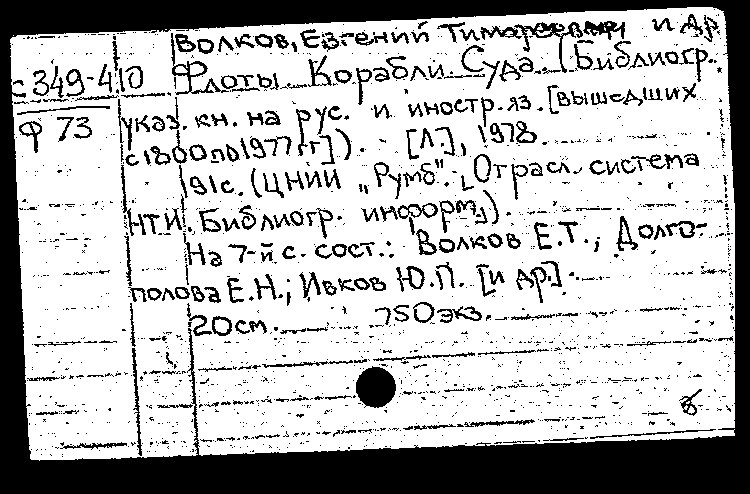 Волков, Евгений Тимофеевич и др
с349-410 Флоты. Корабли. Суда. (Библиогр.
Ф 73 указ. кн. на рус. и иностр. яз. [вышедших
с 1800 по 1977 гг]). [Л.], 1978.
191с. (ЦНИИ „Румб". Отрасл. система
НТИ. Библиогр. информ.).
На 7-й с. сост.: Волков Е.Т., Долго-
полова Е.Н.; Ивков Ю.П. [и др.].
20см. 750экз.